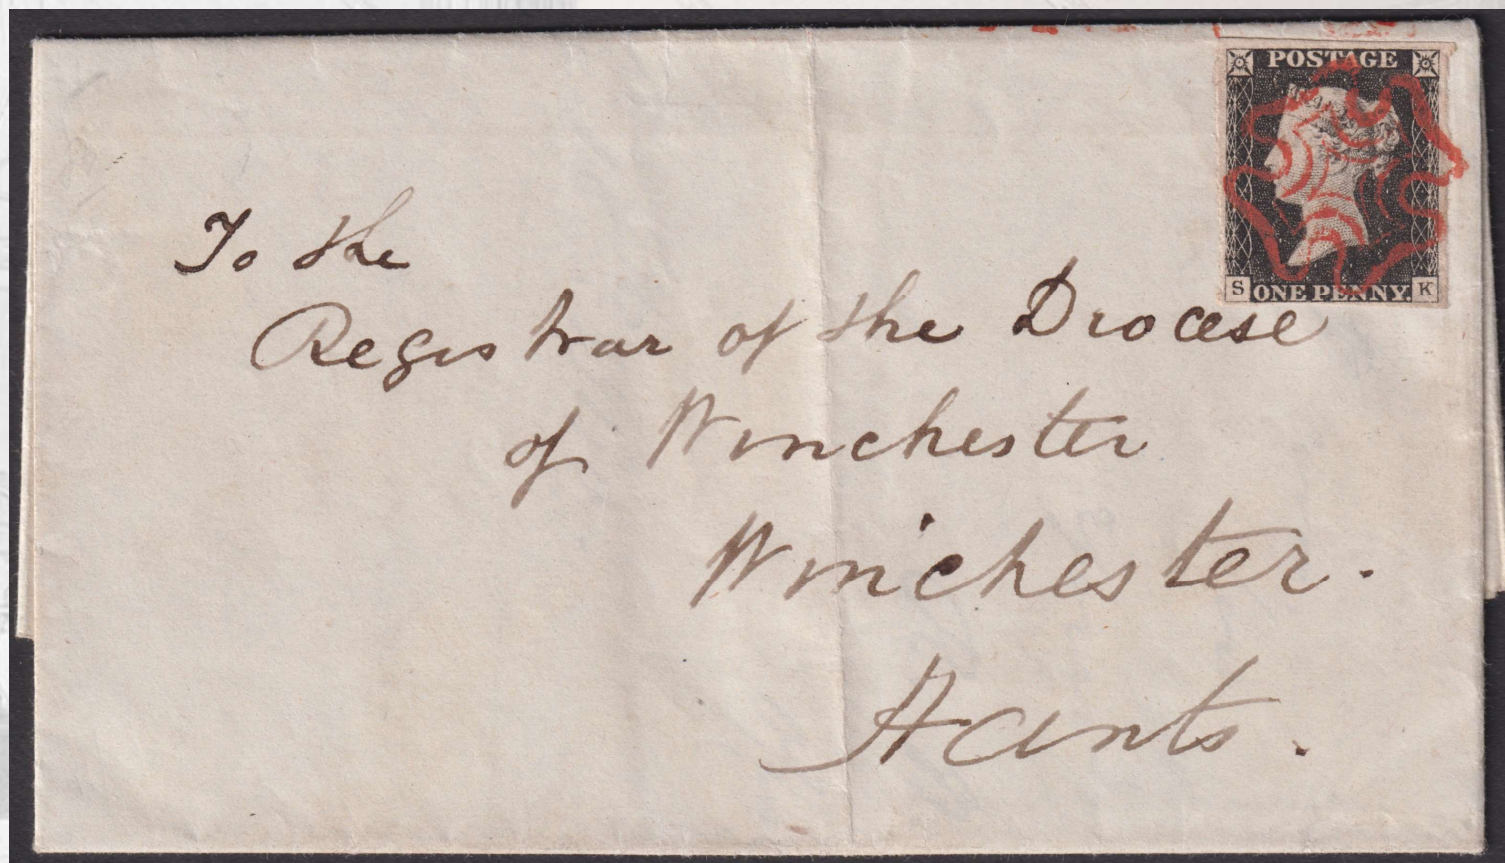 POSTAGE
S ONE PENNY. K
To the
Registrar of the Diocese
of Winchester
Winchester.
Hants.